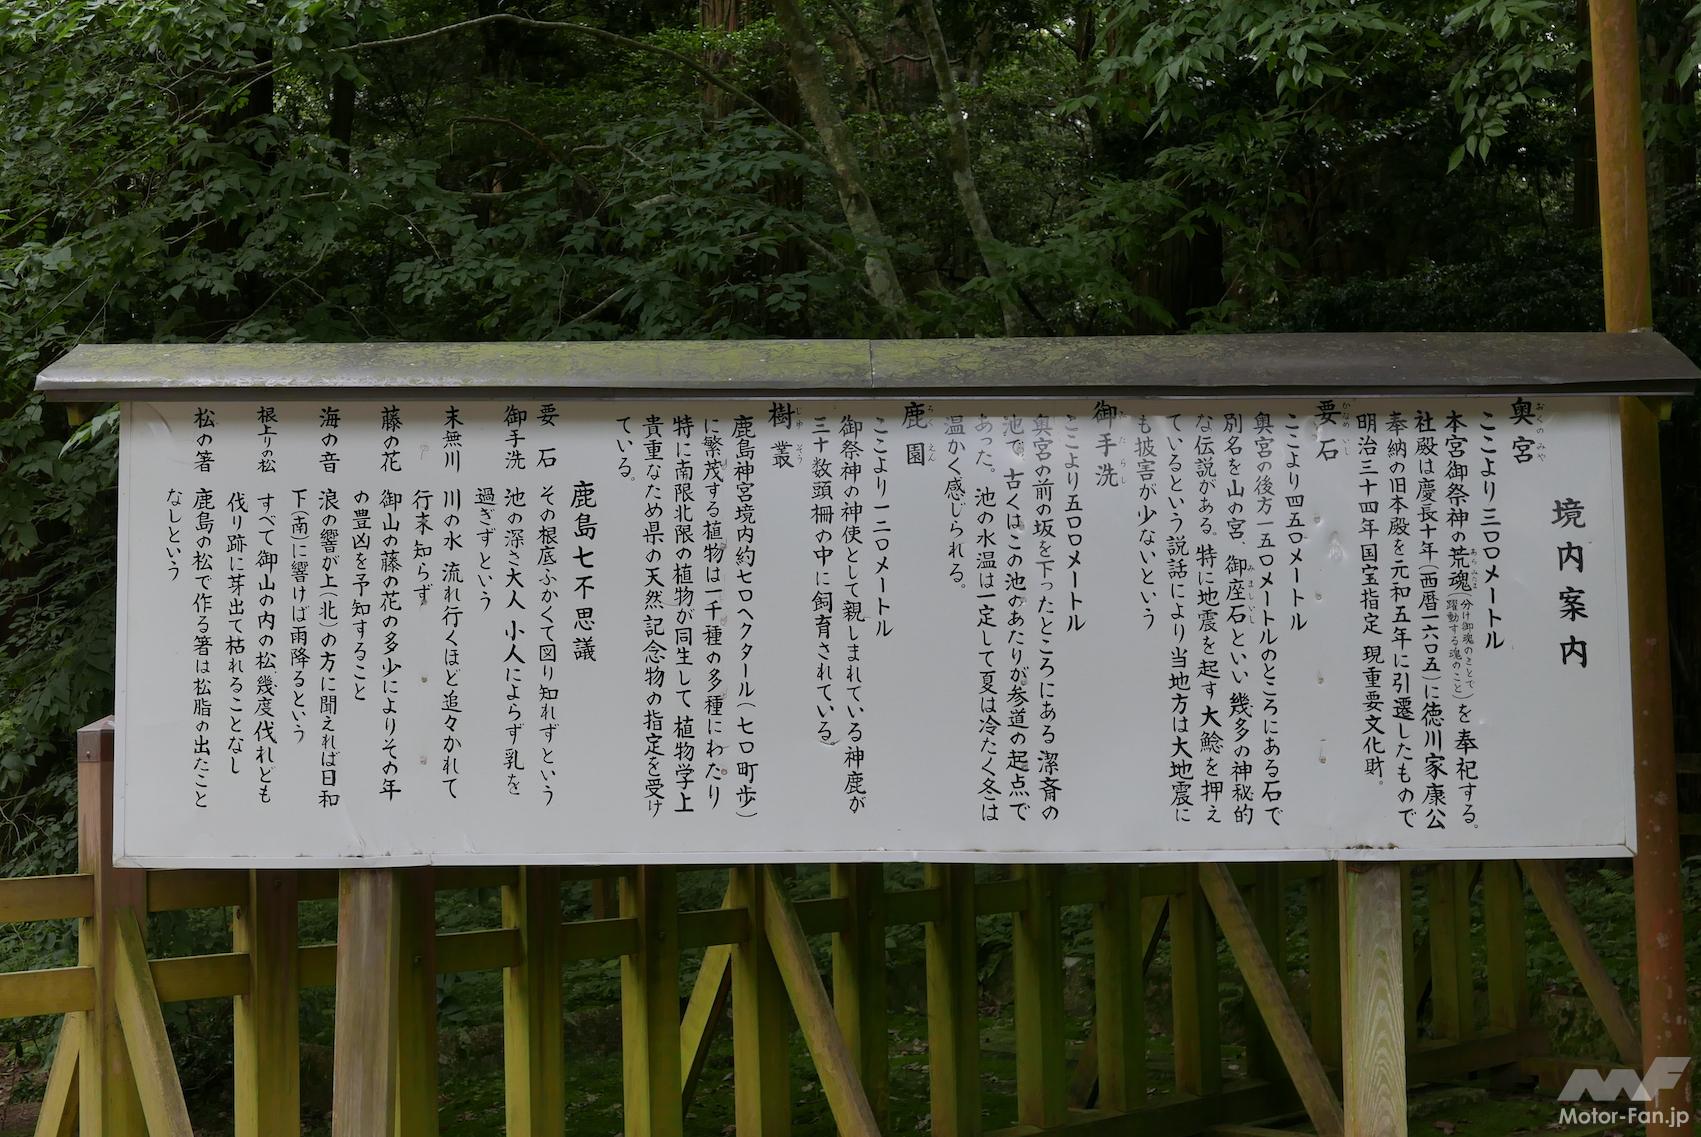 境内案内
奥宮
おくのみや
ここより三〇〇メートル
本宮御祭神の荒魂(分け御魂のことで躍動する魂のこと)を奉祀する。
あらみたま
社殿は慶長十年(西暦一六〇五)に徳川家康公
奉納の旧本殿を元和五年に引遷したもので
明治三十四年国宝指定 現重要文化財。
要石
かなめいし
ここより四五〇メートル
奥宮の後方一五〇メートルのところにある石で
別名を山の宮、御座石といい 幾多の神秘的
みましいし
な伝説がある。特に地震を起す大鯰を押え
ているという説話により当地方は大地震に
も披害が少ないという
御手洗
みたらし
ここより五〇〇メートル
奥宮の前の坂を下ったところにある 潔斎の
池で、古くはこの池のあたりが参道の起点で
あった。池の水温は一定して夏は冷たく冬は
温かく感じられる。
鹿園
ろくえん
ここより一二〇メートル
御祭神の神使として親しまれている神鹿が
三十数頭柵の中に飼育されている。
樹叢
じゅそう
鹿島神宮境内約七〇ヘクタール(七〇町歩)
に繁茂する植物は一千種の多種にわたり
特に南限北限の植物が同生して植物学上
貴重なため県の天然記念物の指定を受け
ている。
鹿島七不思議
要石 その根底ふかくて図り知れずという
御手洗 池の深さ大人 小人によらず乳を
過ぎずという
末無川 川の水 流れ行くほど追々かれて
行末知らず
藤の花 御山の藤の花の多少によりその年
の豊凶を予知すること
海の音 浪の響が上(北)の方に聞えれば日和
下(南)に響けば雨降るという
根上りの松 すべて御山の内の松幾度伐れども
伐り跡に芽出て枯れることなし
松の箸 鹿島の松で作る箸は松脂の出たこと
なしという
MF
Motor-Fan.jp